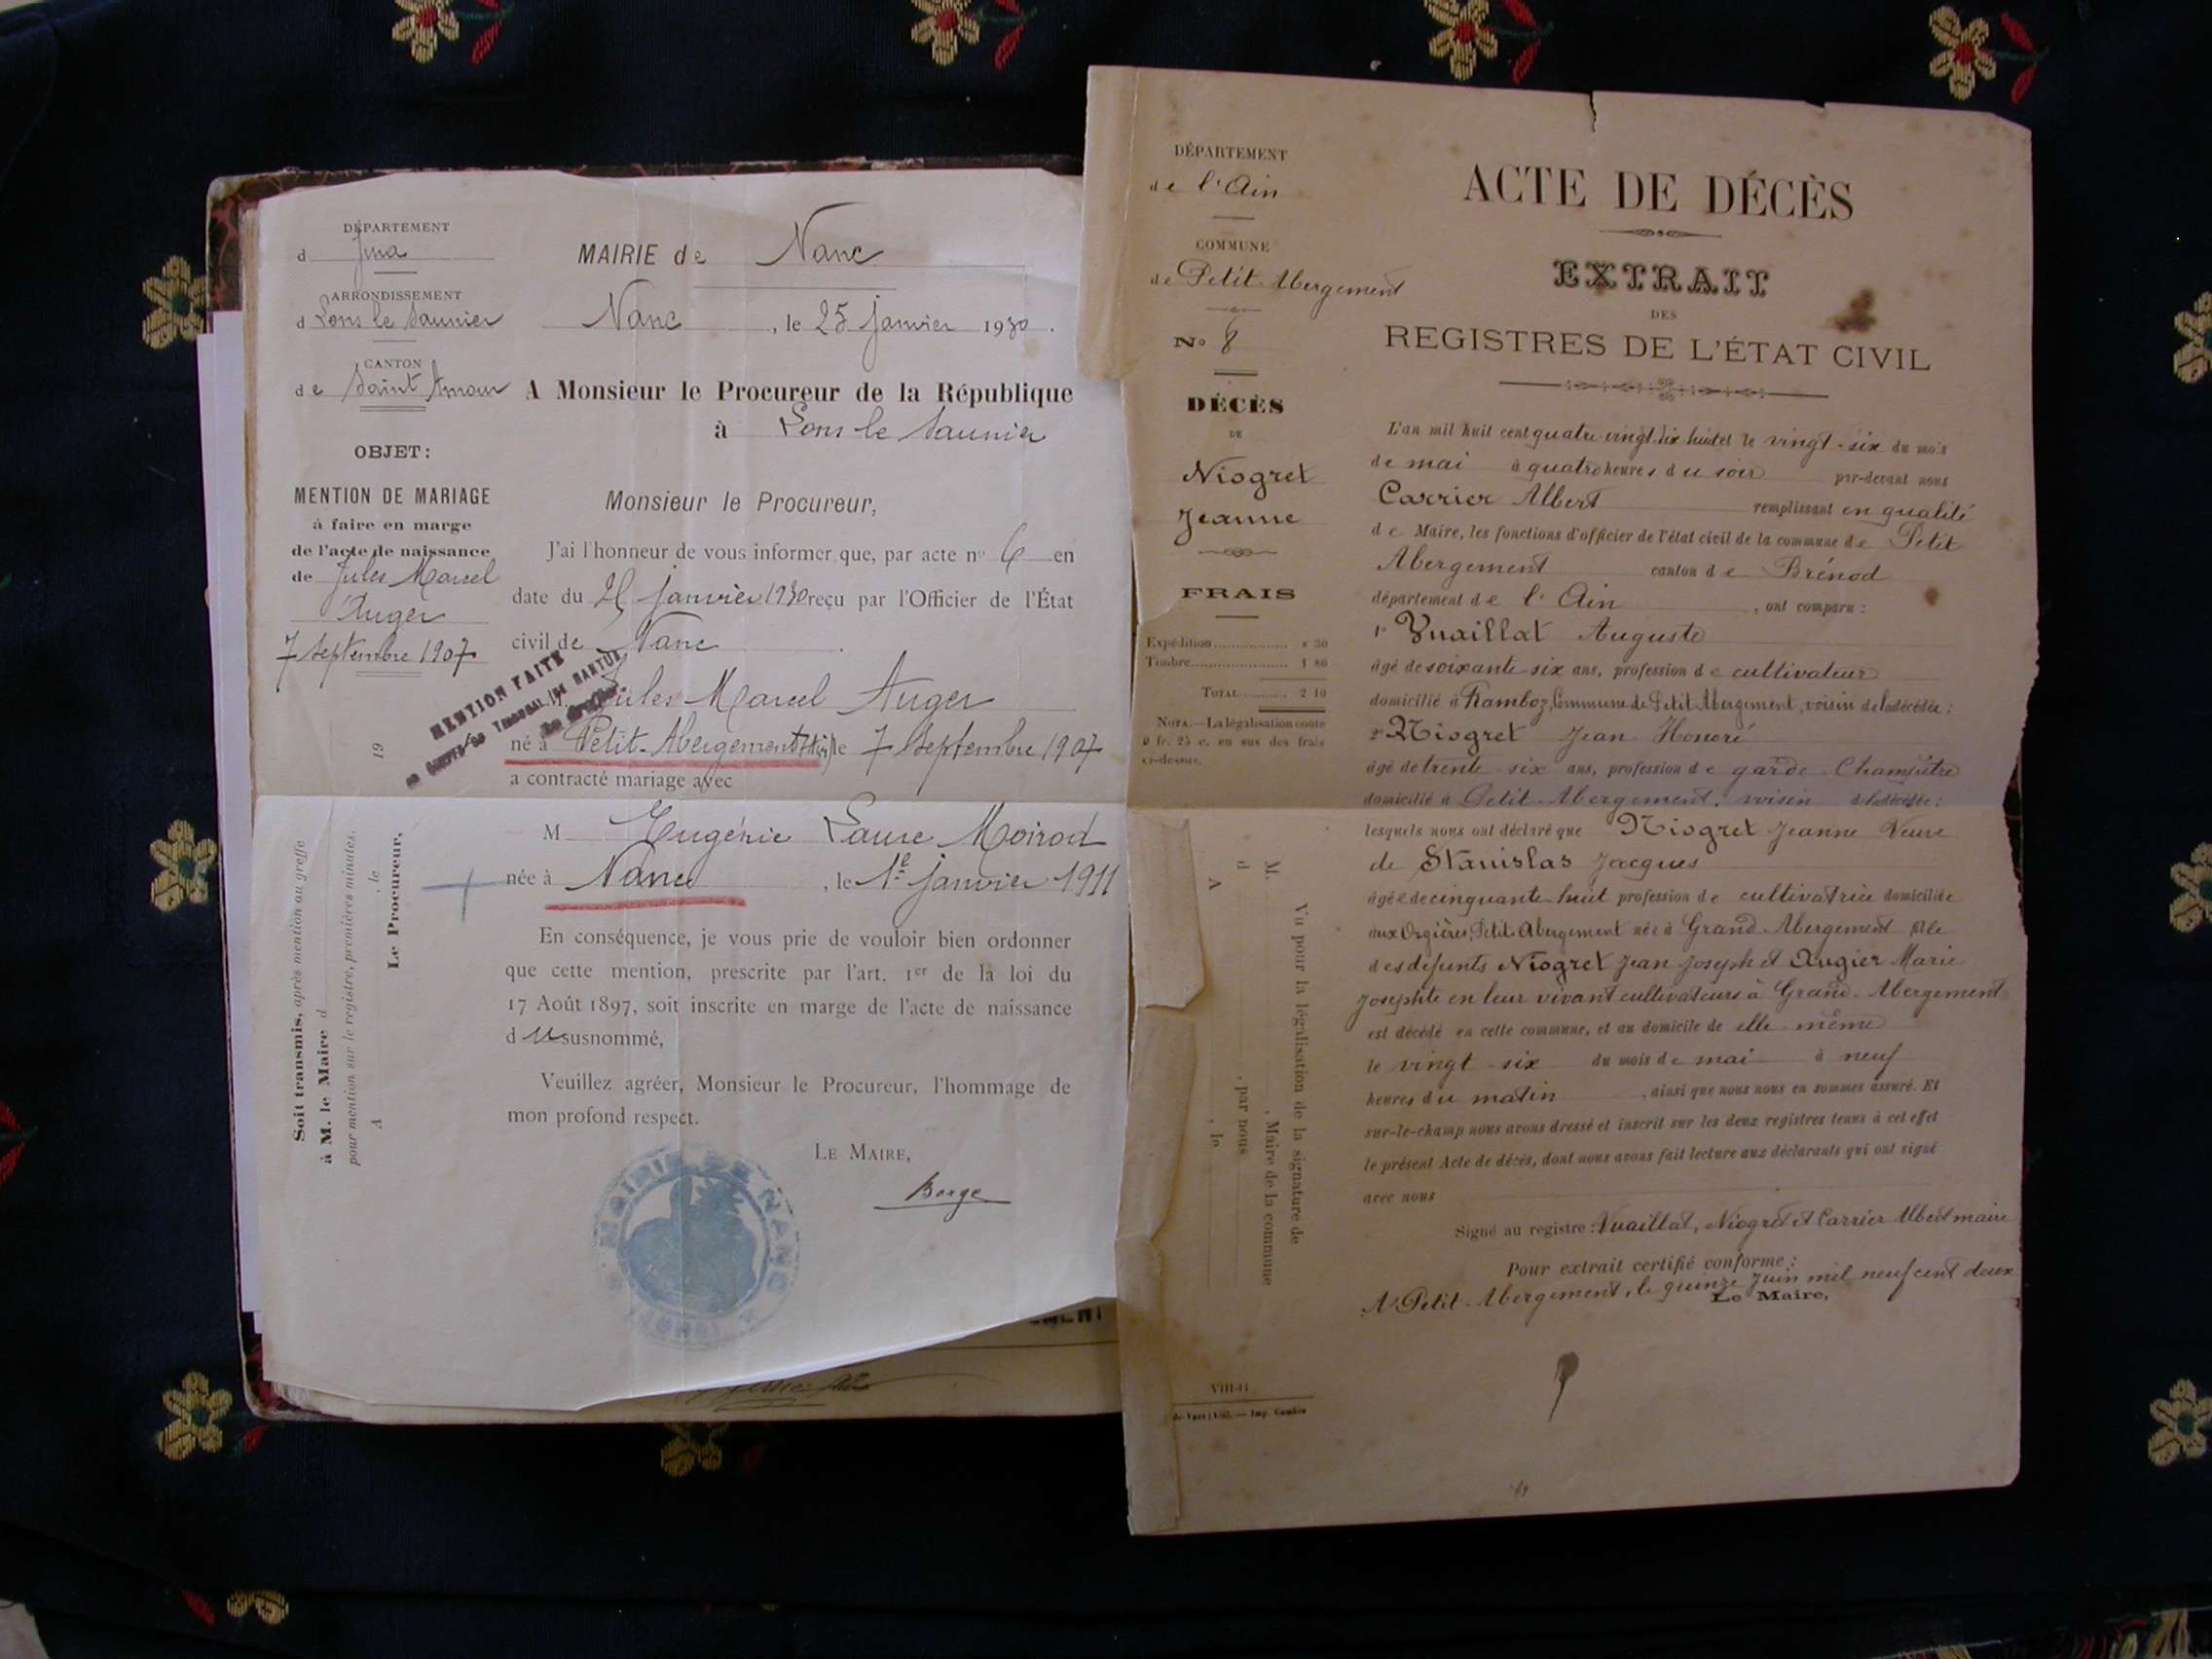 DÉPARTEMENT
d Jura
ARRONDISSEMENT
d Lons le Saunier
CANTON
de Saint Amour
OBJET:
MENTION DE MARIAGE
à faire en marge
de l'acte de naissance
de Jules Marcel
Auger
7 Septembre 1907
19
MENTION FAITE
Soit transmis, après mention au greffe
à M. le Maire d
pour mention sur le registre, premières minutes.
A , le
Le Procureur,
MAIRIE de Nanc
Nanc , le 25 janvier 1930.
A Monsieur le Procureur de la République
à Lons le Saunier
Monsieur le Procureur,
J'ai l'honneur de vous informer que, par acte n° 6 en
date du 25 janvier 1930 reçu par l'Officier de l'État
civil de Nanc
M. Jules Marcel Auger
né à Petit-Abergement (Ain) le 7 Septembre 1907
a contracté mariage avec
M Eugénie Laure Moirod
née à Nanc , le 1er janvier 1911
En conséquence, je vous prie de vouloir bien ordonner
que cette mention, prescrite par l'art. 1er de la loi du
17 Août 1897, soit inscrite en marge de l'acte de naissance
du susnommé,
Veuillez agréer, Monsieur le Procureur, l'hommage de
mon profond respect.
LE MAIRE,
Borge
MAIRIE DE NANC
DÉPARTEMENT
de l'Ain
COMMUNE
de Petit-Abergement
N° 8
DÉCÈS
DE
Niogret
Jeanne
FRAIS
Expédition............... » 30
Timbre............... 1 80
TOTAL......... 2 10
NOTA.—La légalisation coute
0 fr. 25 c. en sus des frais
ci-dessus.
Vu pour la légalisation de la signature de
M. , Maire de la commune
d , par nous
A , le
VIII-11
ACTE DE DÉCÈS
EXTRAIT
DES
REGISTRES DE L'ÉTAT CIVIL
L'an mil huit cent quatre-vingt-dix huit et le vingt-six du mois
de mai à quatre heures du soir par-devant nous
Carrier Albert remplissant en qualité
de Maire, les fonctions d'officier de l'état civil de la commune de Petit
Abergement canton de Brénod
département de l'Ain , ont comparu :
1° Vuaillat Auguste
âgé de soixante-six ans, profession de cultivateur
domicilié à Ramboz, Commune de Petit Abergement, voisin de la décédée ;
2° Niogret Jean-Honoré
âgé de trente-six ans, profession de garde-Champêtre
domicilié à Petit-Abergement, voisin de la décédée ;
lesquels nous ont déclaré que Niogret Jeanne Veuve
de Stanislas Jacques
âgée de cinquante-huit profession de cultivatrice domiciliée
aux Orgières, Petit Abergement née à Grand-Abergement fille
des défunts Niogret Jean Joseph et Augier Marie
Josephte en leur vivant cultivateurs à Grand-Abergement
est décédé en cette commune, et au domicile de elle-même
le vingt-six du mois de mai à neuf
heures du matin , ainsi que nous nous en sommes assuré. Et
sur-le-champ nous avons dressé et inscrit sur les deux registres tenus à cet effet
le présent Acte de décès, dont nous avons fait lecture aux déclarants qui ont signé
avec nous
Signé au registre : Vuaillat, Niogret et Carrier Albert maire
Pour extrait certifié conforme :
A Petit-Abergement, le quinze Juin mil neuf cent deux
Le Maire,